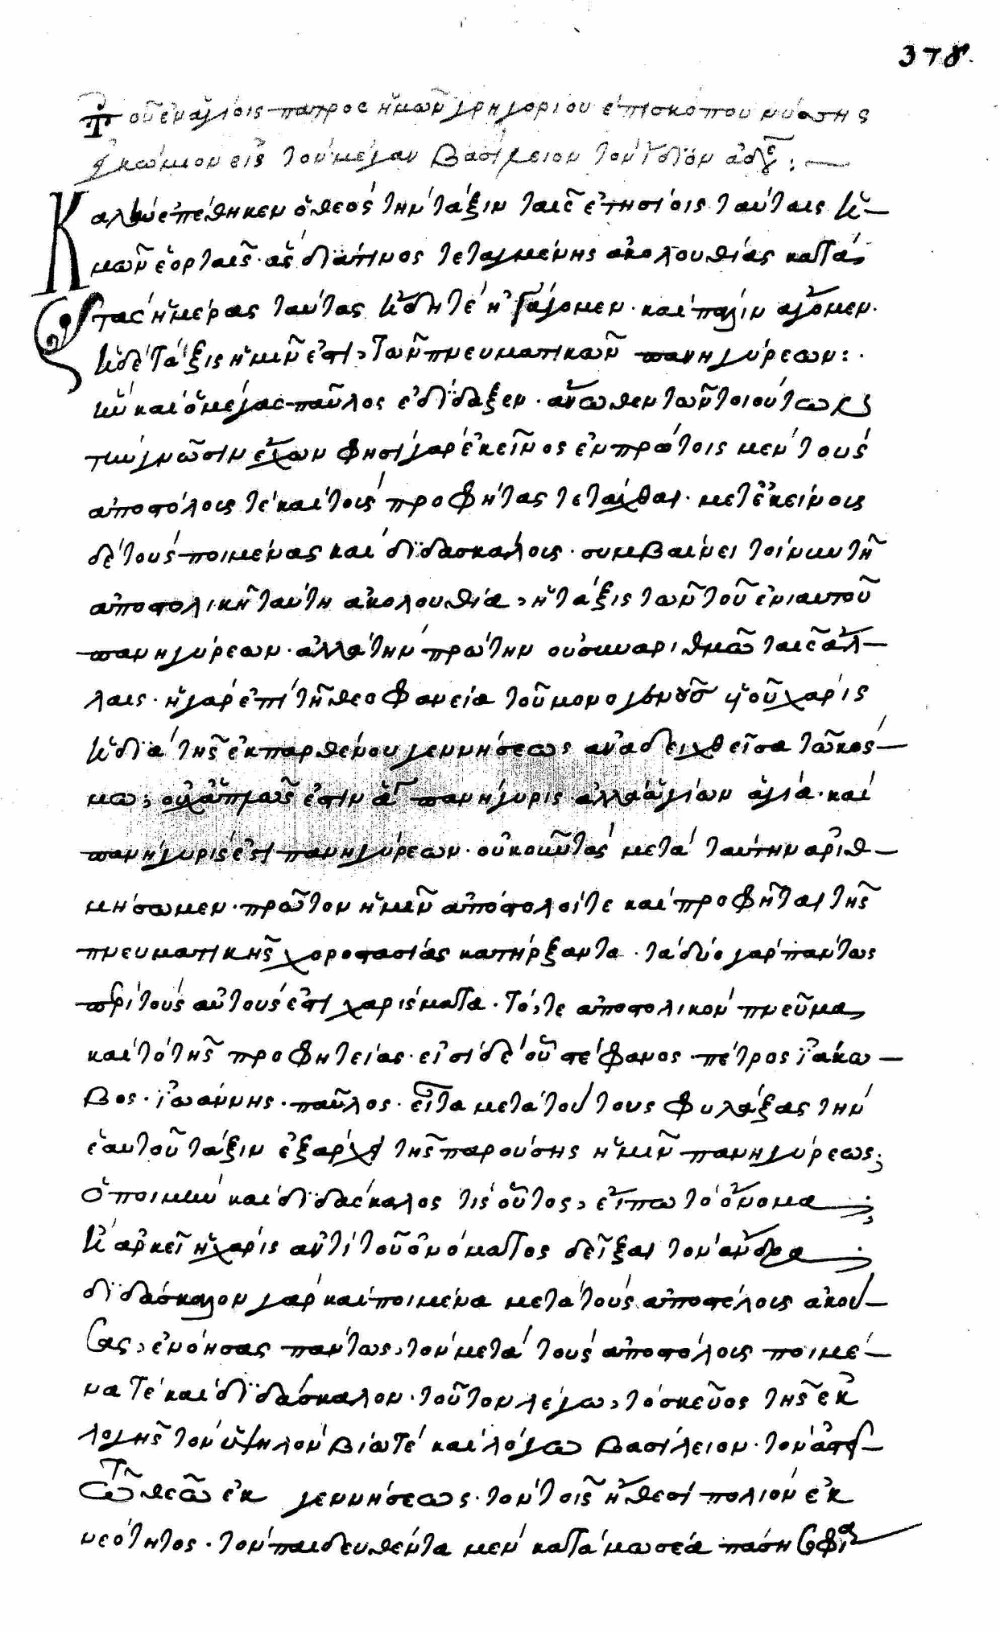 378.
Τοῦ ἐν ἁγίοις πατρὸς ἡμῶν γρηγορίου ἐπισκόπου νύσσης
ἐγκώμιον εἰς τὸν μέγαν βασίλειον τὸν ἴδιον ἀδελφόν :
Καλὴν ἐπέθηκεν ὁ θεὸς τὴν τάξιν ταῖς ἐτησίοις ταύταις ἡ-
μῶν ἑορταῖς· ἃς διά τινος τεταγμένης ἀκολουθίας κατὰ
τὰς ἡμέρας ταύτας ἤδη τε ἠγάγομεν· καὶ πάλιν ἄγομεν·
ἡ δὲ τάξις ἡμῖν ἐστι, τῶν πνευματικῶν πανηγύρεων :·
ἣν καὶ ὁ μέγας παῦλος ἐδίδαξεν· ἄνωθεν τῶν τοιούτων
τὴν γνῶσιν ἔχων φησὶ γὰρ ἐκεῖνος ἐν πρώτοις μὲν τοὺς
ἀποστόλους τὲ καὶ τοὺς προφήτας τετάχθαι· μετ' ἐκείνους
δὲ τοὺς ποιμένας καὶ διδασκάλους· συμβαίνει τοίνυν τῇ
ἀποστολικῇ ταύτῃ ἀκολουθία, ἡ τάξις τῶν τοῦ ἐνιαυτοῦ
πανηγύρεων· ἀλλὰ τὴν πρώτην οὐ συναριθμῶ ταῖς ἄλ-
λαις· ἡ γὰρ ἐπὶ τῇ θεοφανεία τοῦ μονογενοῦς υἱοῦ χάρις
ἡ διὰ τῆς ἐκ παρθένου γεννήσεως ἀναδειχθεῖσα τῶ κόσ-
μω, οὐχ ἁπλῶς ἐστιν ἁγία πανήγυρις ἀλλὰ ἁγίων ἁγία· καὶ
πανήγυρις ἐστι πανηγύρεων· οὐκοῦν τὰς μετὰ ταύτην ἀριθ-
μήσωμεν· πρῶτον ἡμῖν ἀπόστολοί τε καὶ προφῆται τῆς
πνευματικῆς χοροστασίας κατήρξαντο· τὰ δύο γὰρ πάντως
περὶ τοὺς αὐτούς ἐστι χαρίσματα· τό, τε ἀποστολικὸν πνεῦμα,
καὶ τὸ τῆς προφητείας· εἰσὶ δὲ οὗτοι στέφανος· πέτρος ἰάκω-
βος· ἰωάννης· παῦλος· εἶτα μετὰ τούτους φυλάξας τὴν
ἑαυτοῦ τάξιν ἐξάρχει τῆς παρούσης ἡμῖν πανηγύρεως;
ὁ ποιμὴν καὶ διδάσκαλος τίς οὗτος, εἴπω τὸ ὄνομα ;
ἢ ἀρκεῖ ἡ χάρις ἀντὶ τοῦ ὀνόματος δεῖξαι τὸν ἄνδρα ;
διδάσκαλον γὰρ καὶ ποιμένα μετὰ τοὺς ἀποστόλους ἀκού-
σας, ἐνόησας πάντως, τὸν μετὰ τοὺς ἀποστόλους ποιμέ-
να τὲ καὶ διδάσκαλον· τοῦτον λέγω, τὸ σκεῦος τῆς ἐκ
λογῆς τὸν ὑψηλὸν βίω τὲ καὶ λόγω βασίλειον· τὸν ἀστεῖον
τῶ θεῶ ἐκ γεννήσεως· τὸν τοῖς ἤθεσι πολιὸν ἐκ
νεότητος· τὸν παιδευθέντα μὲν κατὰ μωσέα πάση σοφία